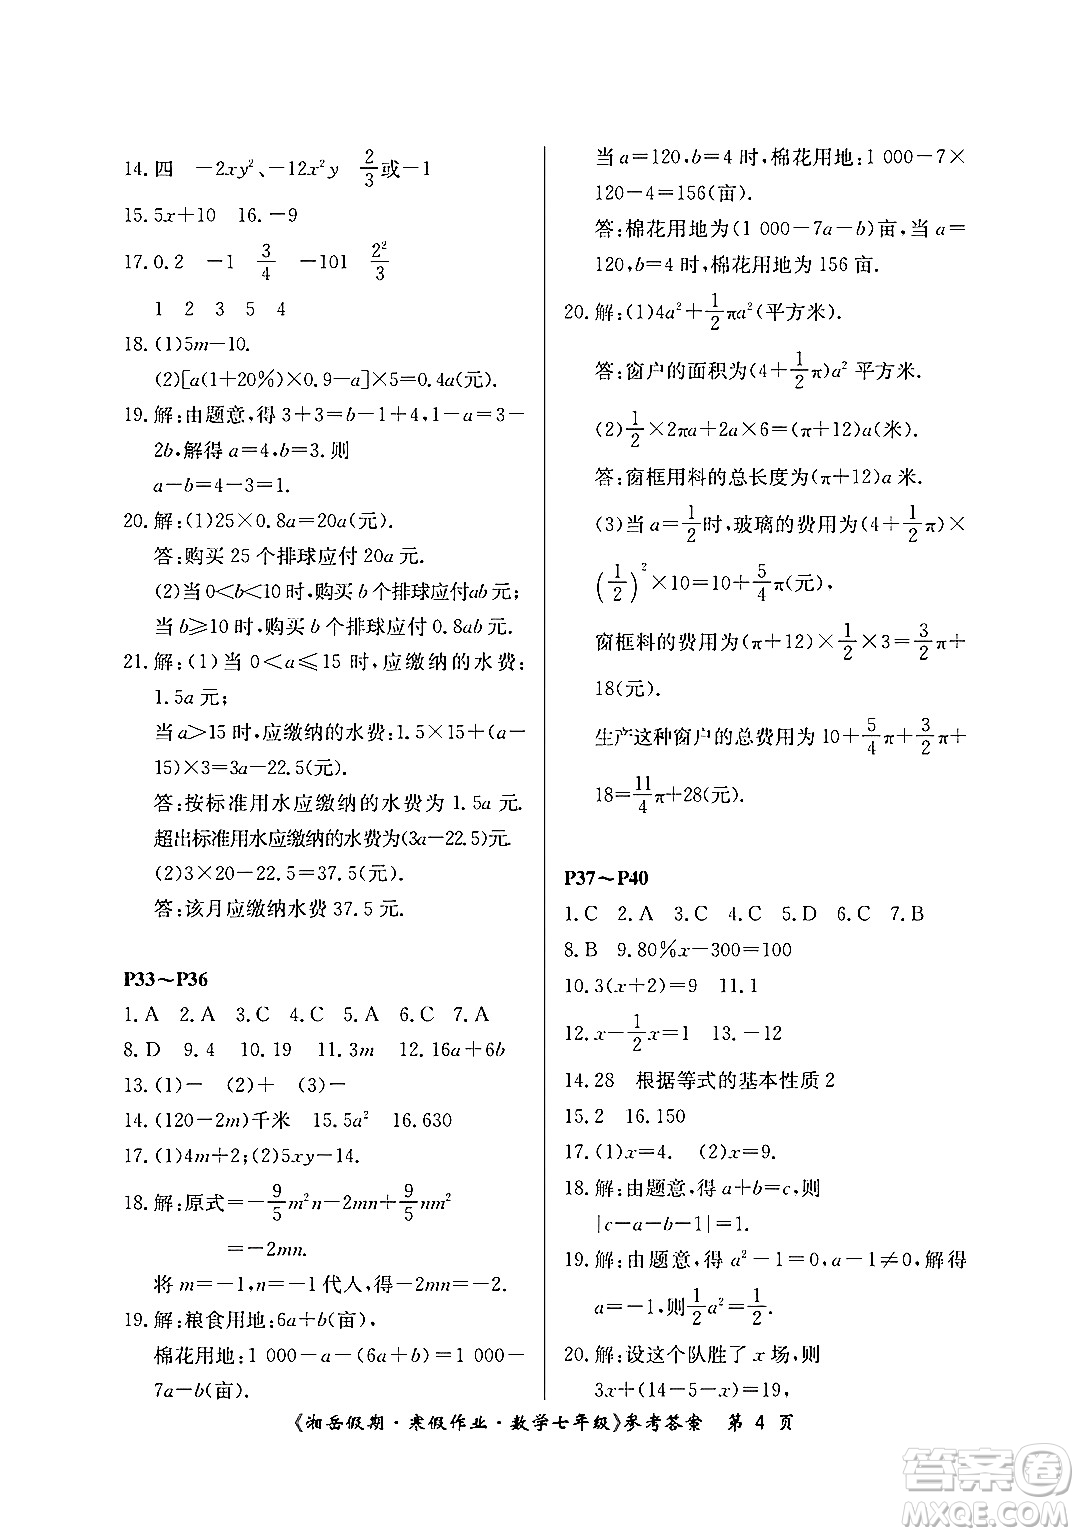 14.四　－2xy²、－12x²y　2/3或－1
15.5x＋10　16.－9
17.0.2　－1　3/4　－101　2²/3
1　2　3　5　4
18.(1)5m－10.
(2)[a(1＋20%)×0.9－a]×5＝0.4a(元).
19.解:由题意,得 3＋3＝b－1＋4,1－a＝3－
2b,解得 a＝4,b＝3.则
a－b＝4－3＝1.
20.解:(1)25×0.8a＝20a(元).
答:购买 25 个排球应付 20a 元.
(2)当 0<b<10 时,购买 b 个排球应付ab 元;
当 b≥10 时,购买 b 个排球应付 0.8ab 元.
21.解:(1)当 0＜a≤15 时,应缴纳的水费:
1.5a 元;
当 a>15 时,应缴纳的水费:1.5×15＋(a－
15)×3＝3a－22.5(元).
答:按标准用水应缴纳的水费为 1.5a 元.
超出标准用水应缴纳的水费为(3a－22.5)元.
(2)3×20－22.5＝37.5(元).
答:该月应缴纳水费 37.5 元.
P33～P36
1.A　2.A　3.C　4.C　5.A　6.C　7.A
8.D　9.4　10.19　11.3m　12.16a＋6b
13.(1)－　(2)＋　(3)－
14.(120－2m)千米　15.5a²　16.630
17.(1)4m＋2;(2)5xy－14.
18.解:原式＝－9/5m²n－2mn＋9/5nm²
＝－2mn.
将 m＝－1,n＝－1代人,得－2mn＝－2.
19.解:粮食用地:6a＋b(亩),
棉花用地:1 000－a－(6a＋b)＝1 000－
7a－b(亩).
当 a＝120,b＝4 时,棉花用地:1 000－7×
120－4＝156(亩).
答:棉花用地为(1 000－7a－b)亩,当 a＝
120,b＝4 时,棉花用地为 156 亩.
20.解:(1)4a²＋1/2πa²(平方米).
答:窗户的面积为(4＋1/2π)a² 平方米.
(2)1/2×2πa＋2a×6＝(π＋12)a(米).
答:窗框用料的总长度为(π＋12)a 米.
(3)当 a＝1/2时,玻璃的费用为(4＋1/2π)×
(1/2)²×10＝10＋5/4π(元),
窗框料的费用为(π＋12)×1/2×3＝3/2π＋
18(元).
生产这种窗户的总费用为 10＋5/4π＋3/2π＋
18＝11/4π＋28(元).
P37～P40
1.C　2.A　3.C　4.C　5.D　6.C　7.B
8.B　9.80%x－300＝100
10.3(x＋2)＝9　11.1
12.x－1/2x＝1　13.－12
14.28　根据等式的基本性质 2
15.2　16.150
17.(1)x＝4.　(2)x＝9.
18.解:由题意,得 a＋b＝c,则
|c－a－b－1|＝1.
19.解:由题意,得 a²－1＝0,a－1≠0,解得
a＝－1,则1/2a²＝1/2.
20.解:设这个队胜了 x 场,则
3x＋(14－5－x)＝19,
《湘岳假期·寒假作业·数学七年级》参考答案　第 4 页
答案卷
MXQE.COM